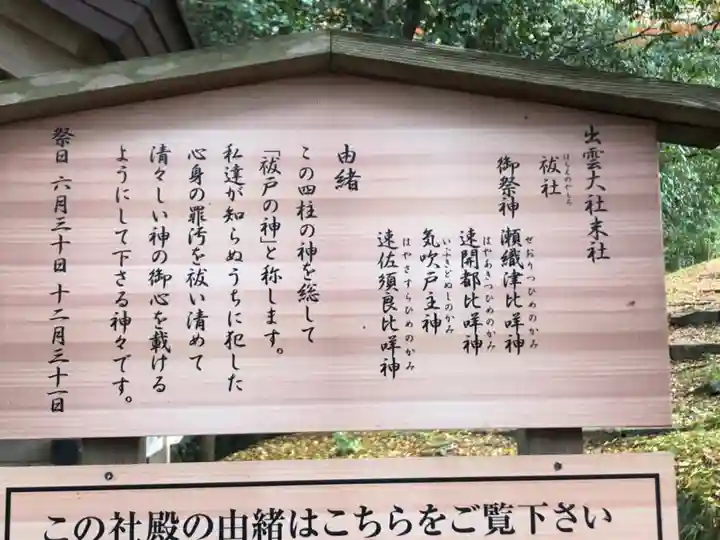 出雲大社末社
祓社
はらえのやしろ
御祭神 瀬織津比咩神
せおりつひめのかみ
速開都比咩神
はやあきつひめのかみ
気吹戸主神
いぶきどぬしのかみ
速佐須良比咩神
はやさすらひめのかみ
由緒
この四柱の神を総して
「祓戸の神」と称します。
私達が知らぬうちに犯した
心身の罪汚を祓い清めて
清々しい神の御心を載ける
ようにして下さる神々です。
祭日 六月三十日 十二月三十一日
この社殿の由緒はこちらをご覧下さい